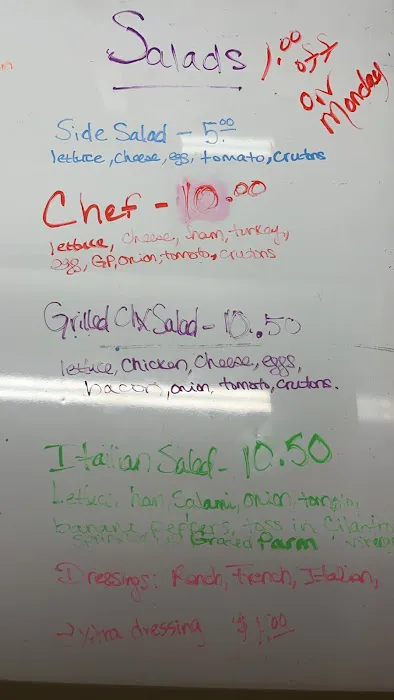 Salads 1.00 off on Monday
Side Salad - 5.00
lettuce, cheese, egg, tomato, crutons
Chef - 10.00
lettuce, cheese, ham, turkey,
egg, GP, onion, tomato, crutons
Grilled Chx Salad - 10.50
lettuce, chicken, cheese, eggs,
bacon, onion, tomato, crutons.
Italian Salad - 10.50
Lettuce, ham, Salami, onion,
banana peppers, toss in Cilantro
Graded Parm
Dressings: Ranch, French, Italian,
dressing $1.00